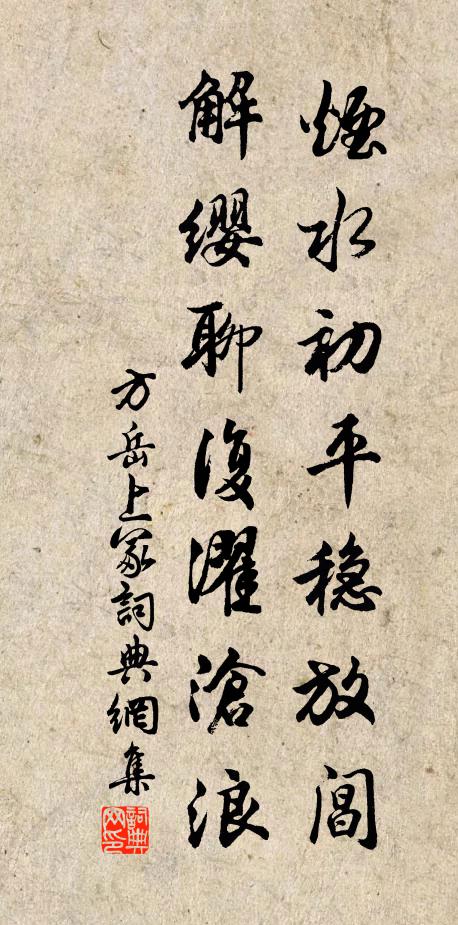 煙水初平稳放閶
解纓聊復濯滄浪
方岳上冢詞典網集
詞典网印